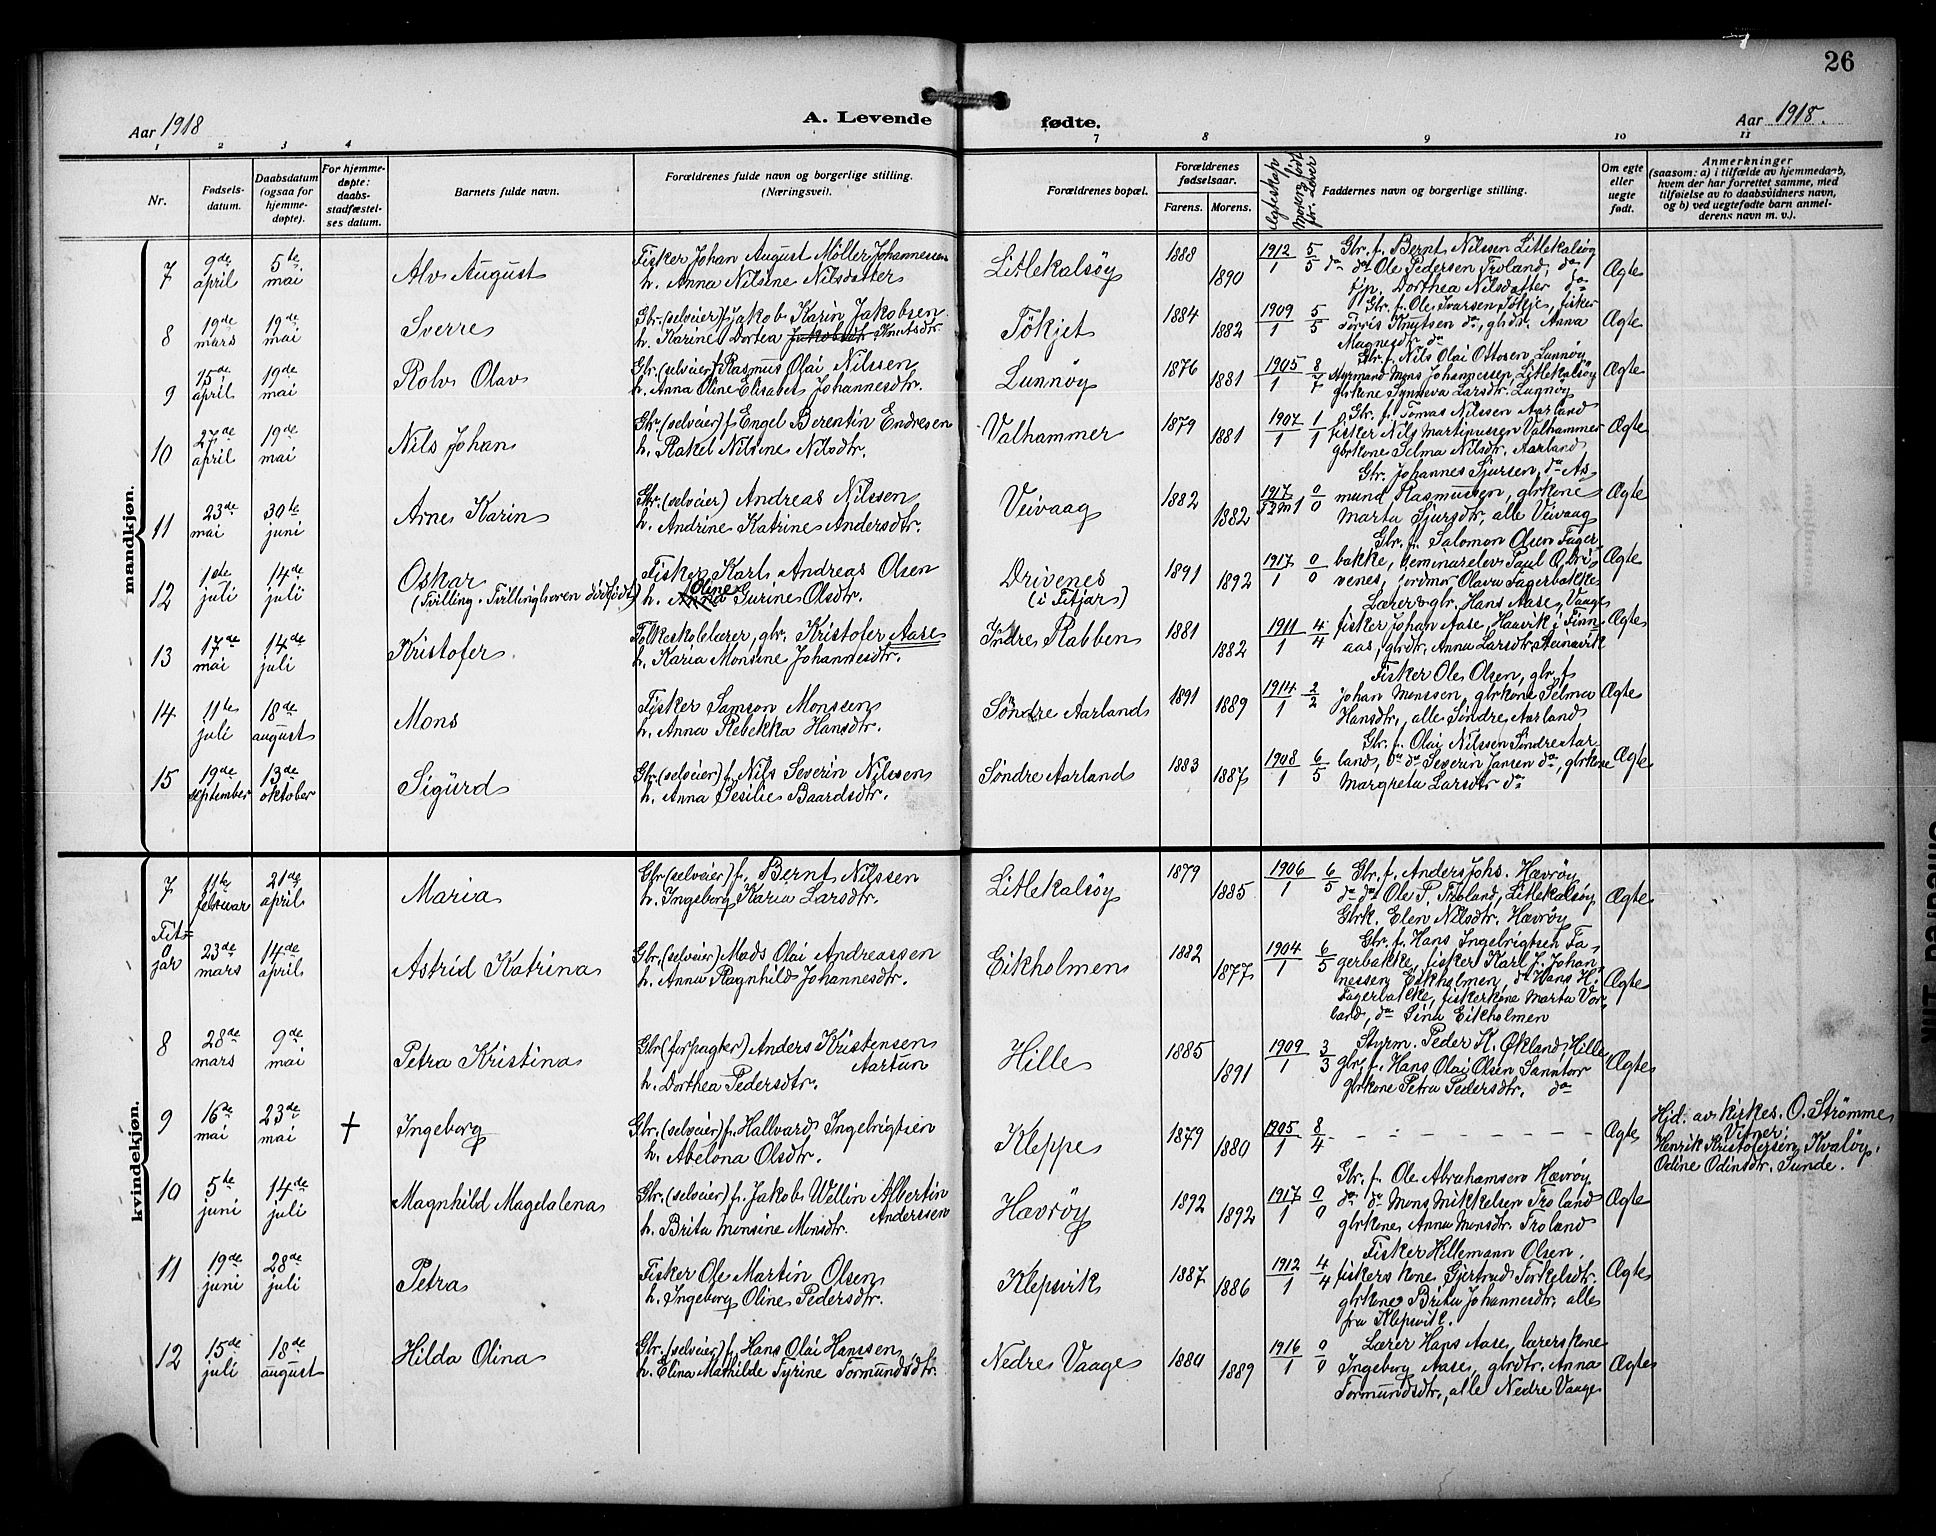 26
Aar 1918
A. Levende
fødte.
Aar 1918.
1 2 3 4 7 8 9 10 11
Nr.
Fødsels-
datum.
Daabsdatum
(ogsaa for
hjemme-
døpte).
For hjemme-
døpte:
daabs-
stadfæstel-
ses datum.
Barnets fulde navn.
Forældrenes fulde navn og borgerlige stilling.
(Næringsvei).
Forældrenes bopæl.
Forældrenes
fødselsaar.
Farens. Morens.
Faddernes navn og borgerlige stilling.
Om egte
eller
uegte
født.
Anmerkninger
(saasom: a) i tilfælde av hjemmedaab,
hvem der har forrettet samme, med
tilføielse av to daabsvidners navn,
og b) ved uegtefødte barn anmel-
derens navn m. v.).
mandkjøn.
7
9de april
5te mai
Alv August
Fisker Johan August Møller Johannessen
h. Anna Nilsine Nilsdatter
Litlekalsøy
1888 1890
1912/1 5/5
Gbr. f. Bernt Nilssen Litlekalsøy
da da Ole Pedersen Troland, da
pp. Dorthea Nilsdatter da
Ægte
8
19de mars
19de mai
Sverre
Gbr. (selveier) f. Jakob Karin Jakobsen
h. Karine Dortea Jakobsdtr. Knutsdtr
Tökjet
1884 1882
1909/1 5/5
Gbr. f. Ole Ivarsen Tökje, fisker
Torris Knutsen da, gbdr. Anna
Magnesdtr da
Ægte
9
15de april
19de mai
Rolv Olav
Gbr. (selveier) f. Rasmus Olai Nilssen
h. Anna Oline Elisabet Johannesdtr.
Lunnøy
1876 1881
1905/1 8/7
Gbr. f. Nils Olai Ottosen Lunnøy
Styrmand Mons Johannessen, Litlekalsøy
gbrkone Synneva Larsdtr. Lunnøy
Ægte
10
27de april
19de mai
Nils Johan
Gbr. (selveier) f. Engel Berentin Endresen
h. Rakel Nilsine Nilsdtr.
Valhammer
1879 1881
1907/1 1/1
Gbr. f. Tomas Nilssen Aarland
fisker Nils Martinussen Valhammer
gbrkone Selma Nilsdtr. Aarland
Ægte
11
23de mai
30te juni
Arne Karin
Gbr. (selveier) Andreas Nilssen
h. Andrine Katrine Andersdtr.
Veivaag
1882 1882
1917 0/0
Gbr. Johannes Sjursen, da As
mund Rasmussen, gbrkone
Marta Sjursdtr, alle Veivaag
Ægte
12
1ste juli
14de juli
Oskar
(Tvilling. Tvillingbroren dödfödt)
Fisker Karl Andreas Olsen
h. Anna Oline Gurine Olsdtr.
Drivenes
(i Fitjar)
1891 1892
1917/1 0/0
Gbr. f. Salomon Olsen Fager
bakke, seminarelev Paul O. Dri-
venes, jordmor Olava Fagerbakke
Ægte
13
17de mai
14de juli
Kristofer
Folkeskolelærer, gbr. Kristofer Aase
h. Karia Monsine Johannesdtr.
Indre Rabben
1881 1882
1911/1 4/4
Lærer & gbr. Hans Aase, Vaage
fisker Johan Aase, Haavik i Finn
aas, gbrdtr. Anna Larsdtr Steinsvik
Ægte
14
11te juli
18de august
Mons
Fisker Samson Monsen
h. Anna Rebekka Hansdtr.
Søndre Aarland
1891 1889
1914/1 2/2
Fisker Ole Olsen, gbr. f.
Johan Monssen, gbrkone Selma
Hansdtr, alle Søndre Aarland
Ægte
15
19de september
13de oktober
Sigurd
Gbr. (selveier) f. Nils Severin Nilssen
h. Anna Sesilie Baardsdtr.
Søndre Aarland
1883 1887
1908/1 6/5
Gbr. f. Olai Nilssen Søndre Aar
land, da da Severin Jansen da, gbrkone
Margreta Larsdtr da
Ægte
kvindekjøn.
7
11te februar
21de april
Maria
Gbr (selveier) f. Bernt Nilssen
h. Ingeborg Karia Larsdtr.
Litlekalsøy
1879 1885
1906/1 6/5
Gbr. f. Anders Johs. Hævrøy
da da Ole P. Troland, Litlekalsøy
Gbrk. Elen Nilsdtr. Hævrøy
Ægte
Fit=
jar
23de mars
14de april
Astrid Katrina
Gbr. (selveier) Mads Olai Andreassen
h. Anna Ragnhild Johannesdtr.
Eikholmen
1882 1877
1904/1 6/5
Gbr. f. Hans Ingebrigtsen Fa
gerbakke, fisker Karl J. Johan
nessen Eikholmen, da Hans H.
Fagerbakke, fiskerkone Marta Vor
land, da Sina Eikholmen
Ægte
8
28de mars
9de mai
Petra Kristina
Gbr (forpagter) Anders Kristensen
Aartun
h. Dorthea Pedersdtr.
Hille
1885 1891
1909/1 3/3
Styrm. Peder K. Økland, Hille
gbr. f. Hans Olai Olsen Sanntor
gbrkone Petra Pedersdtr. da
Ægte
9
16de mai
23de mai
+
Ingeborg
Gbr. (selveier) f. Hallvard Ingebrigtsen
h. Abelona Olsdtr.
Kleppe
1879 1880
1905/1 8/4
– – – – – – – –
Ægte
Hjd. av kirkes. O. Strømme
Vitner:
Henrik Kristofersen Kvaløy,
Odine Odinsdtr. Sunde.
10
5te juni
14de juli
Magnhild Magdalena
Gbr. (selveier) f. Jakob Wellin Albertin
Anderssen
h. Brita Monsine Monsdtr.
Hævrøy
1892 1892
1917/1 0/0
Gbr. f. Ole Abrahamsen Hævrøy
da da Mons Mikkelsen Troland
gbrkone Anna Monsdtr. Troland
Ægte
11
19de juni
28de juli
Petra
Fisker Ole Martin Olsen
h. Ingeborg Oline Pedersdtr.
Klepsvik
1887 1886
1912/1 4/4
Fisker Hillemann Olsen,
fiskers kone Gjertrud Torkelsdtr.
gbrkone Brita Johannesdtr. alle
fra Klepsvik.
Ægte
12
15de juli
18de august
Hilda Olina
Gbr. (selveier) f. Hans Olai Hanssen
h. Elina Mathilde Tyrine Tormundsdtr.
Nedre Vaage
1880 1889
1916/1 0/0
Lærer Hans Aase, lærerskone
Ingeborg Aase, gbrdtr. Anna
Tormundsdtr., alle Nedre Vaage
Ægte